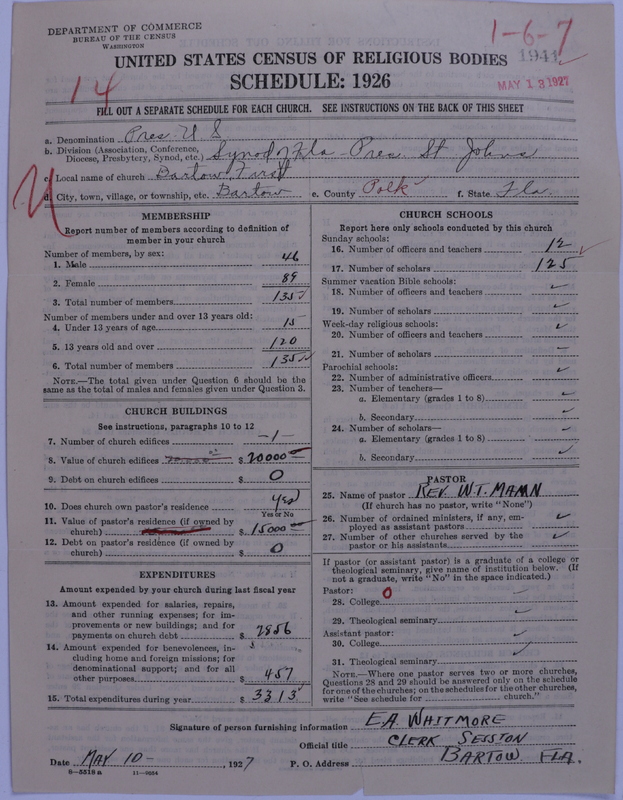 DEPARTMENT OF COMMERCE
BUREAU OF THE CENSUS
WASHINGTON
1-6-7
1941
UNITED STATES CENSUS OF RELIGIOUS BODIES
SCHEDULE: 1926
MAY 13 1927
14
FILL OUT A SEPARATE SCHEDULE FOR EACH CHURCH. SEE INSTRUCTIONS ON THE BACK OF THIS SHEET
a. Denomination Pres. U S
b. Division (Association, Conference, Diocese, Presbytery, Synod, etc.) Synod of Fla Pres. St Johns
c. Local name of church Bartow First
d. City, town, village, or township, etc. Bartow e. County Polk f. State Fla.
MEMBERSHIP
Report number of members according to definition of
member in your church
Number of members, by sex:
1. Male 46
2. Female 89
3. Total number of members 135
Number of members under and over 13 years old:
4. Under 13 years of age 15
5. 13 years old and over 120
6. Total number of members 135
NOTE.—The total given under Question 6 should be the
same as the total of males and females given under Question 3.
CHURCH BUILDINGS
See instructions, paragraphs 10 to 12
7. Number of church edifices -1-
8. Value of church edifices $ 20000
9. Debt on church edifices $ 0
10. Does church own pastor's residence Yes
Yes or No
11. Value of pastor's residence (if owned by
church) $ 15000
12. Debt on pastor's residence (if owned by
church) $ 0
EXPENDITURES
Amount expended by your church during last fiscal year
13. Amount expended for salaries, repairs,
and other running expenses; for im-
provements or new buildings; and for
payments on church debt $ 2856
14. Amount expended for benevolences, in-
cluding home and foreign missions; for
denominational support; and for all
other purposes $ 457
15. Total expenditures during year $ 3313
CHURCH SCHOOLS
Report here only schools conducted by this church
Sunday schools:
16. Number of officers and teachers 12
17. Number of scholars 125
Summer vacation Bible schools:
18. Number of officers and teachers
19. Number of scholars
Week-day religious schools:
20. Number of officers and teachers
21. Number of scholars
Parochial schools:
22. Number of administrative officers
23. Number of teachers—
a. Elementary (grades 1 to 8)
b. Secondary
24. Number of scholars—
a. Elementary (grades 1 to 8)
b. Secondary
PASTOR
25. Name of pastor REV. W.T. MANN
(If church has no pastor, write "None")
26. Number of ordained ministers, if any, em-
ployed as assistant pastors
27. Number of other churches served by the
pastor or his assistants
If pastor (or assistant pastor) is a graduate of a college or
theological seminary, give name of institution below. (If
not a graduate, write "No" in the space indicated.)
Pastor: 0
28. College
29. Theological seminary
Assistant pastor:
30. College
31. Theological seminary
NOTE.—Where one pastor serves two or more churches,
Questions 28 and 29 should be answered only on the schedule
for one of the churches; on the schedules for the other churches,
write "See schedule for church."
Signature of person furnishing information E.A. WHITMORE
Official title CLERK SESSION
Date MAY 10-, 1927 P. O. Address BARTOW FLA.
8-5518 a 11-9034